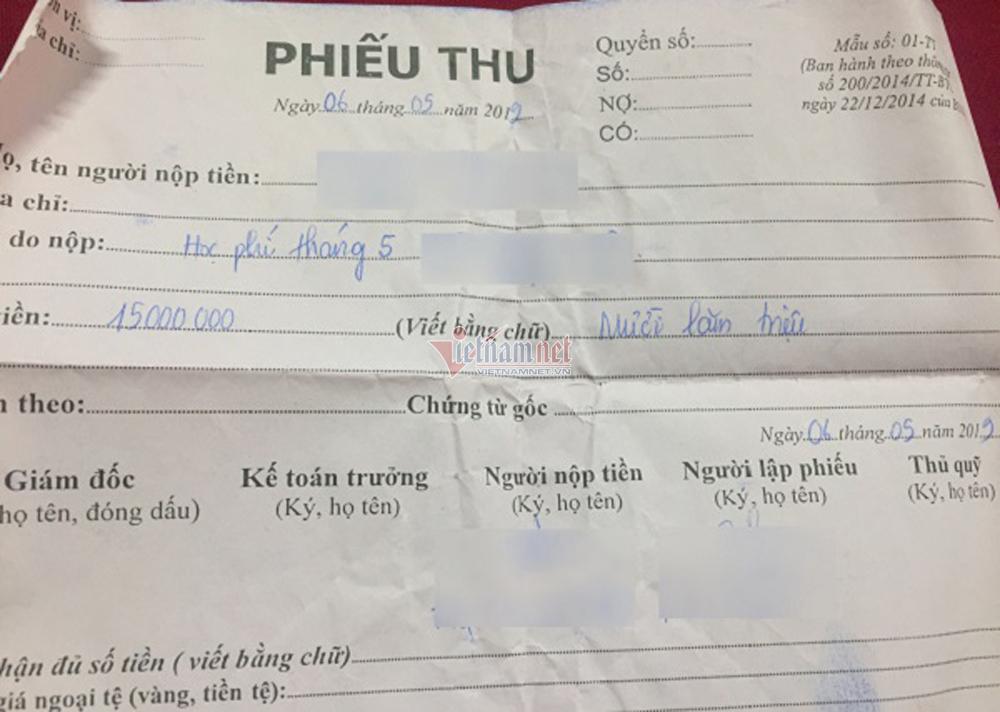 n vị:
a chỉ:
PHIẾU THU
Ngày 06 tháng 05 năm 2019
Quyển số:
Số:
NỢ:
CÓ:
Mẫu số: 01-T
(Ban hành theo
số 200/2014/TT-B
ngày 22/12/2014 của
ọ, tên người nộp tiền:
a chỉ:
do nộp: Học phí tháng 5
iền: 15000.000 (Viết bằng chữ) Mười lăm triệu
Vietnamnet
VIETNAMNET.VN
n theo: Chứng từ gốc
Ngày 06 tháng 05 năm 2019
Giám đốc Kế toán trưởng Người nộp tiền Người lập phiếu Thủ quỹ
họ tên, đóng dấu) (Ký, họ tên) (Ký, họ tên) (Ký, họ tên) (Ký, họ tên)
hận đủ số tiền ( viết bằng chữ)
giá ngoại tệ (vàng, tiền tệ):